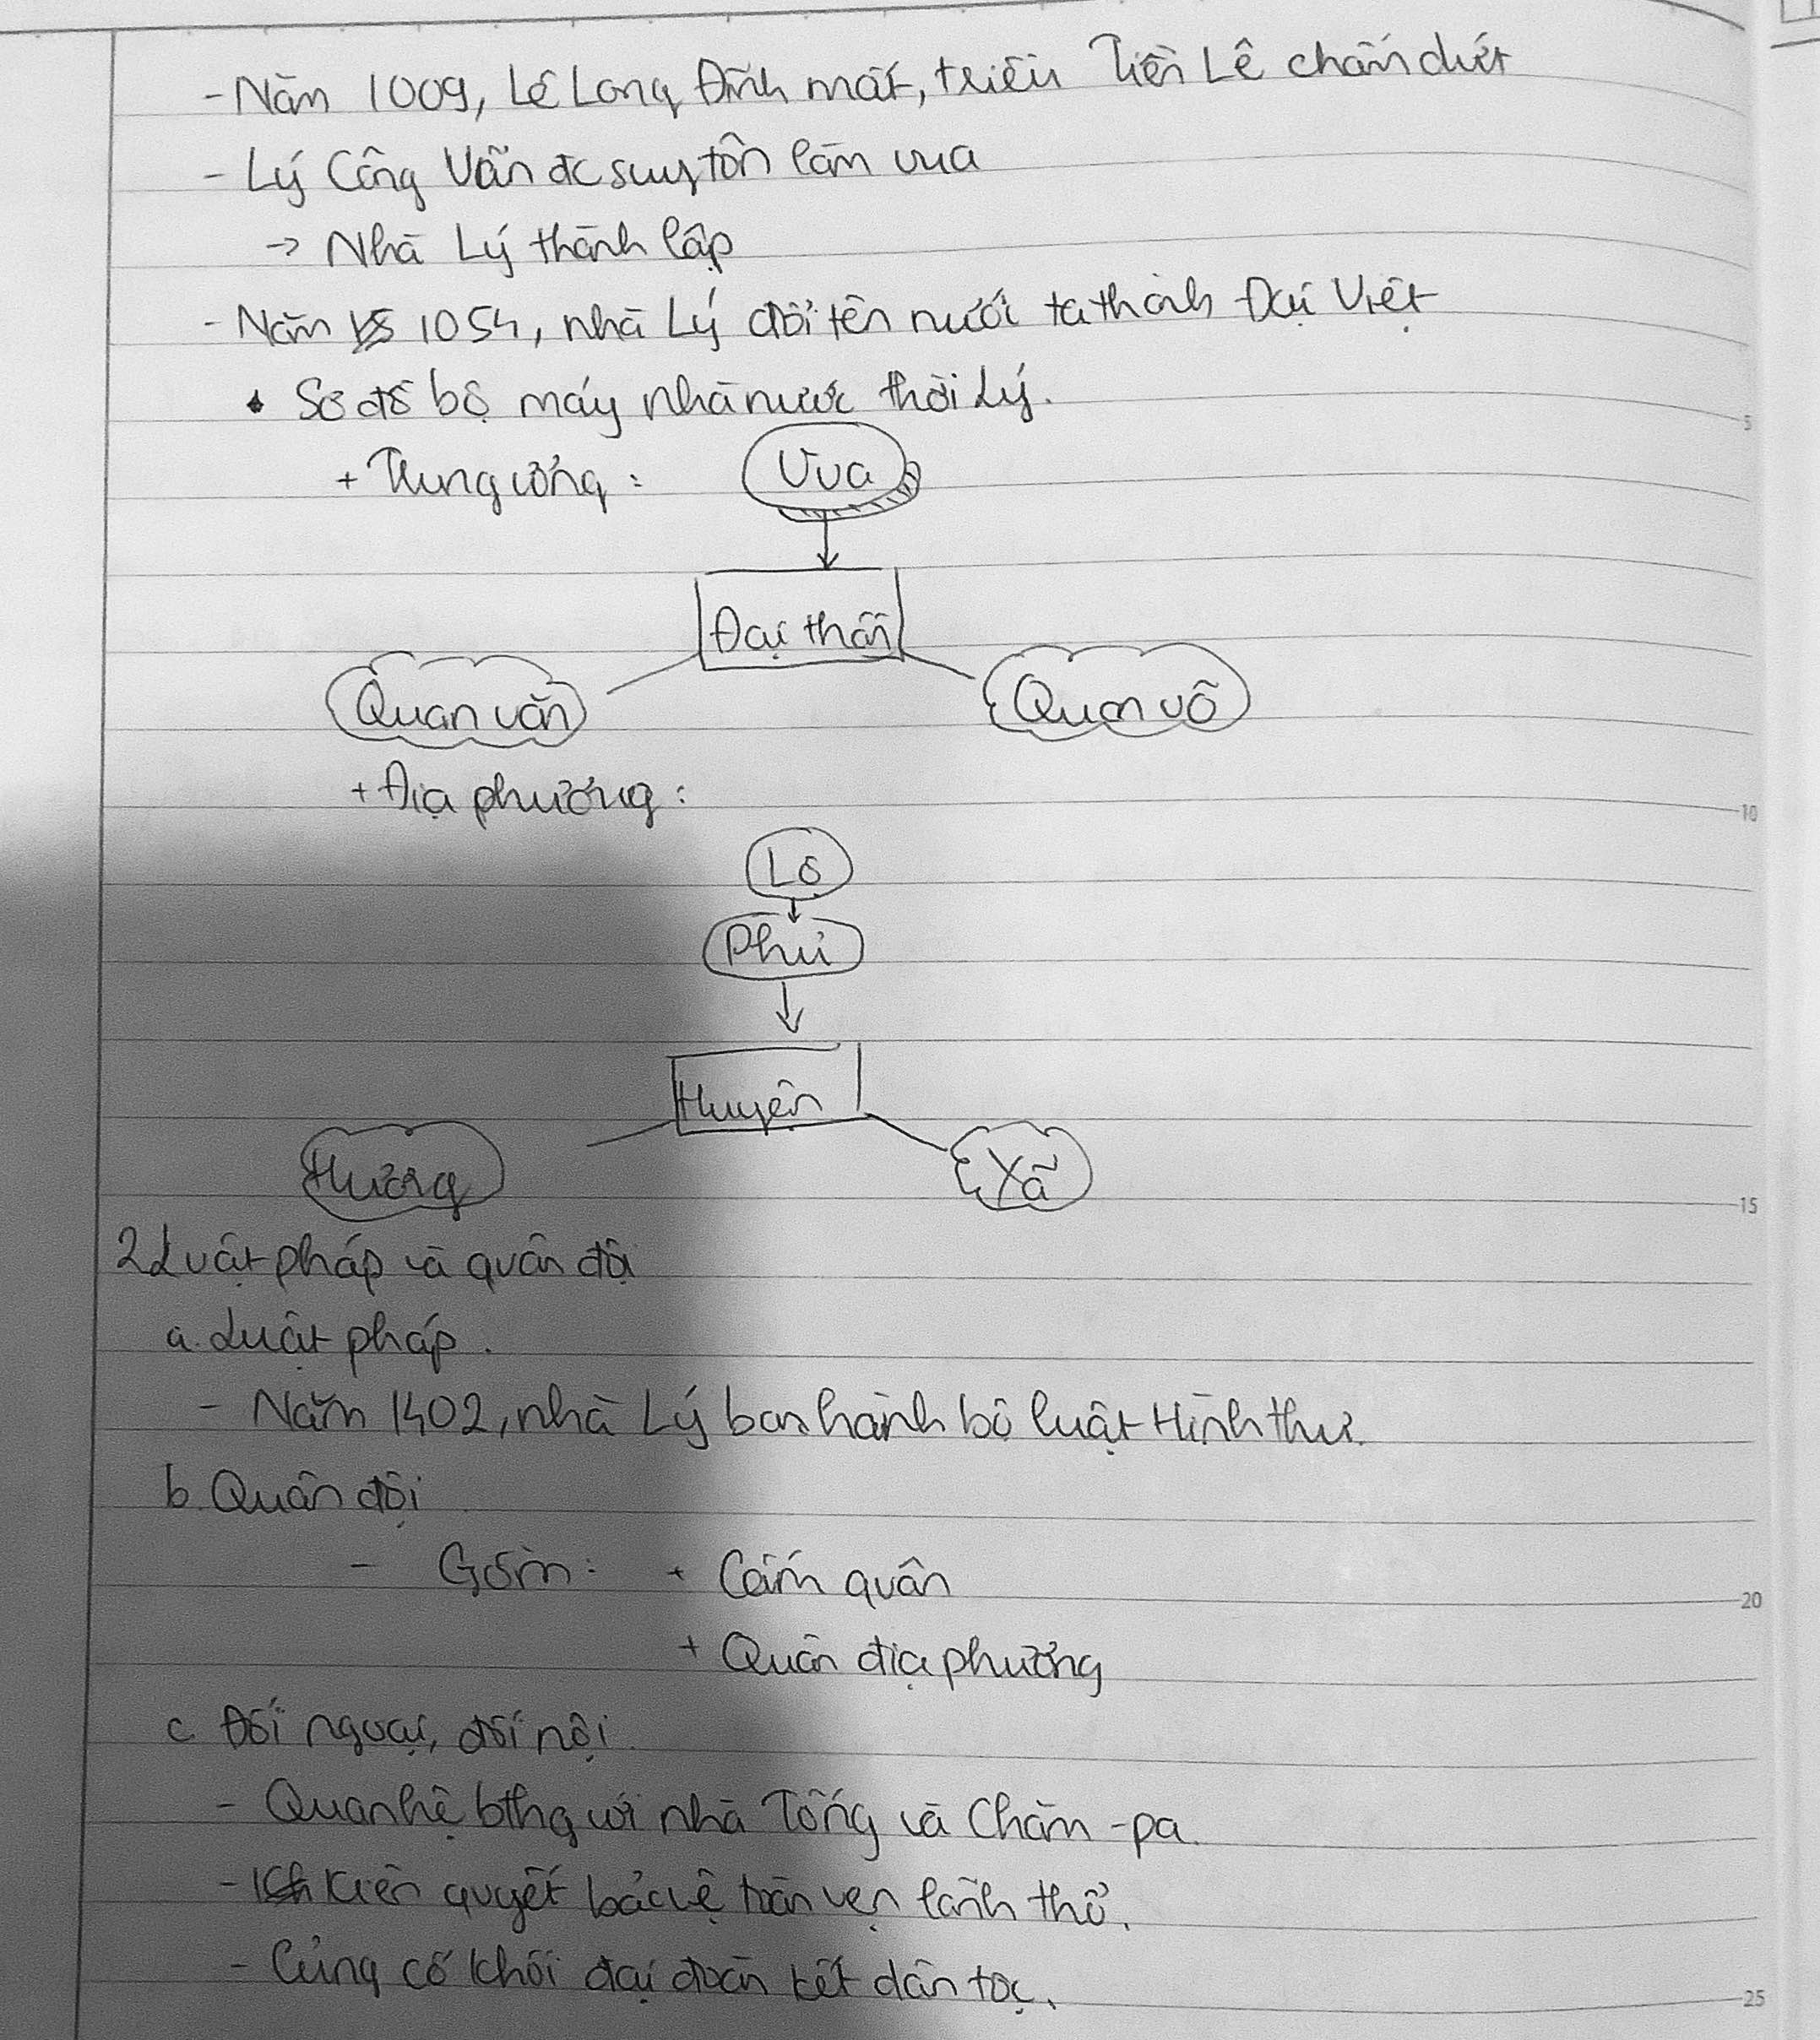 - Năm 1009, Lê Long Đĩnh mất, triều Tiền Lê chấm dứt
- Lý Công Uẩn đc suy tôn làm vua
→ Nhà Lý thành lập
- Năm 1054, nhà Lý đổi tên nước ta thành Đại Việt
• Sơ đồ bộ máy nhà nước thời Lý.
+ Trung ương :
Vua
Đại thần
Quan văn
Quan võ
+ Địa phương :
Lộ
Phủ
Huyện
Hương
Xã
2 Luật pháp và quân đội
a. Luật pháp.
- Năm 1402, nhà Lý ban hành bộ luật Hình thư.
b. Quân đội
- Gồm : + Cấm quân
+ Quân địa phương
c. Đối ngoại, đối nội.
- Quan hệ bthg với nhà Tống và Chăm-pa.
- Kiên quyết bảo vệ toàn vẹn lãnh thổ.
- Củng cố khối đại đoàn kết dân tộc.
5
10
15
20
25